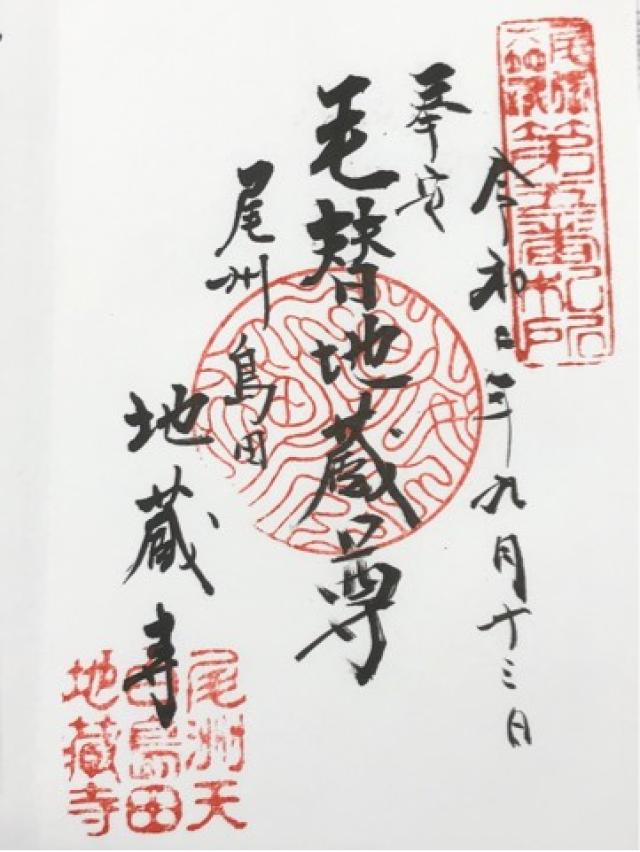 尾張
六地蔵
第五番札所
令和二年九月十三日
奉安
毛替地蔵尊
尾州島田
地蔵寺
尾洲天
白島田
地蔵寺